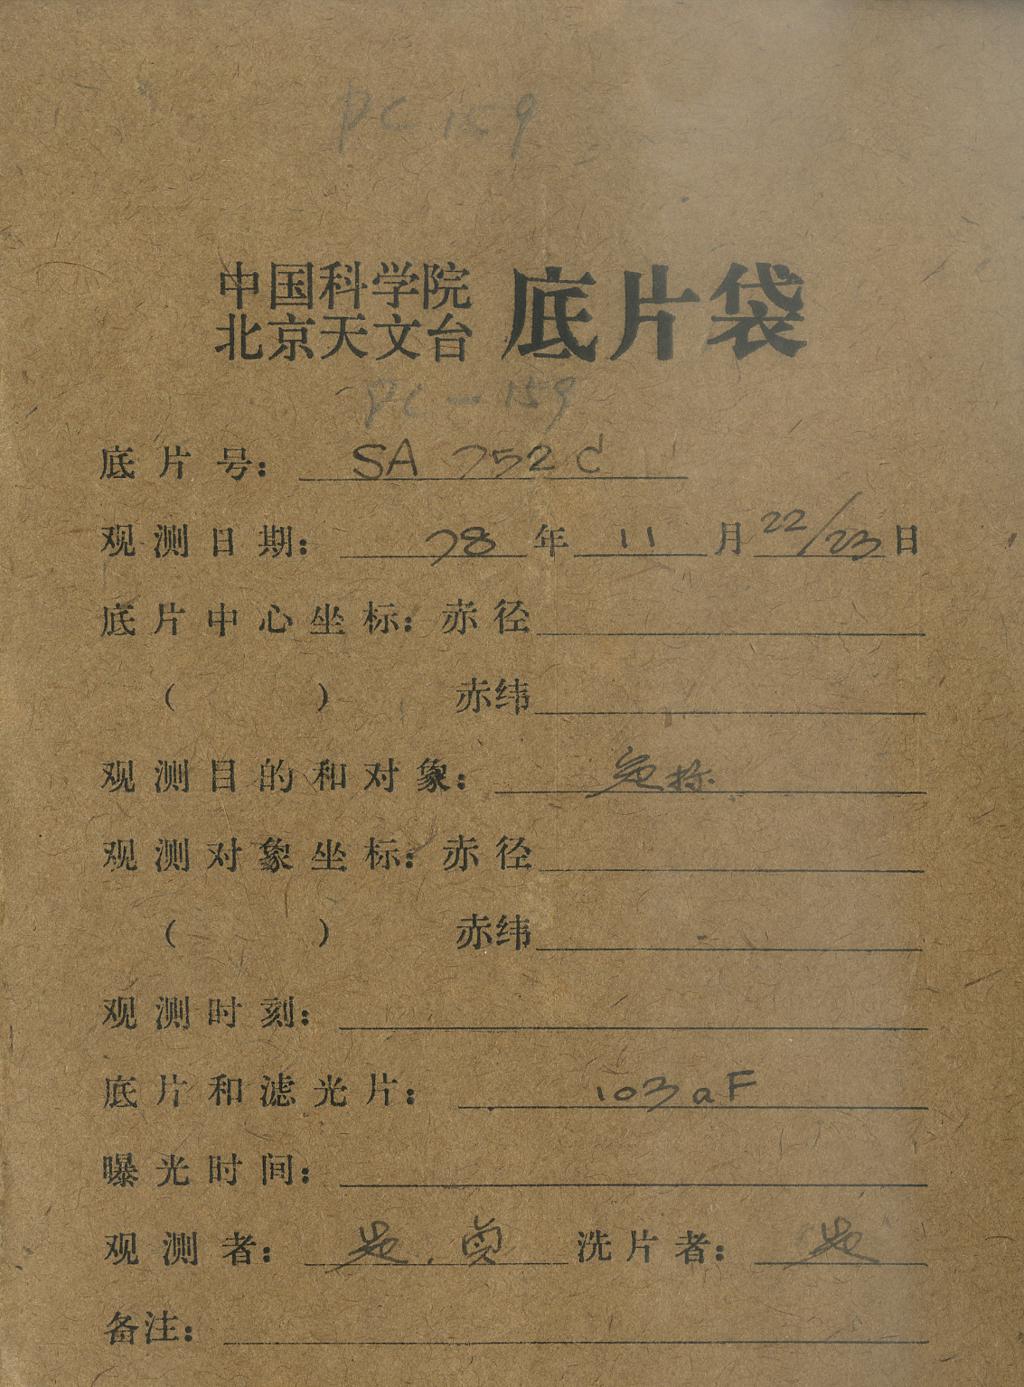 PC 159
中国科学院
北京天文台 底片袋
PC-159
底片号: SA 752 C
观测日期: 78 年 11 月 22/23 日
底片中心坐标: 赤径
( ) 赤纬
观测目的和对象: 定标
观测对象坐标: 赤径
( ) 赤纬
观测时刻:
底片和滤光片: 103aF
曝光时间:
观测者: 洗片者:
备注: